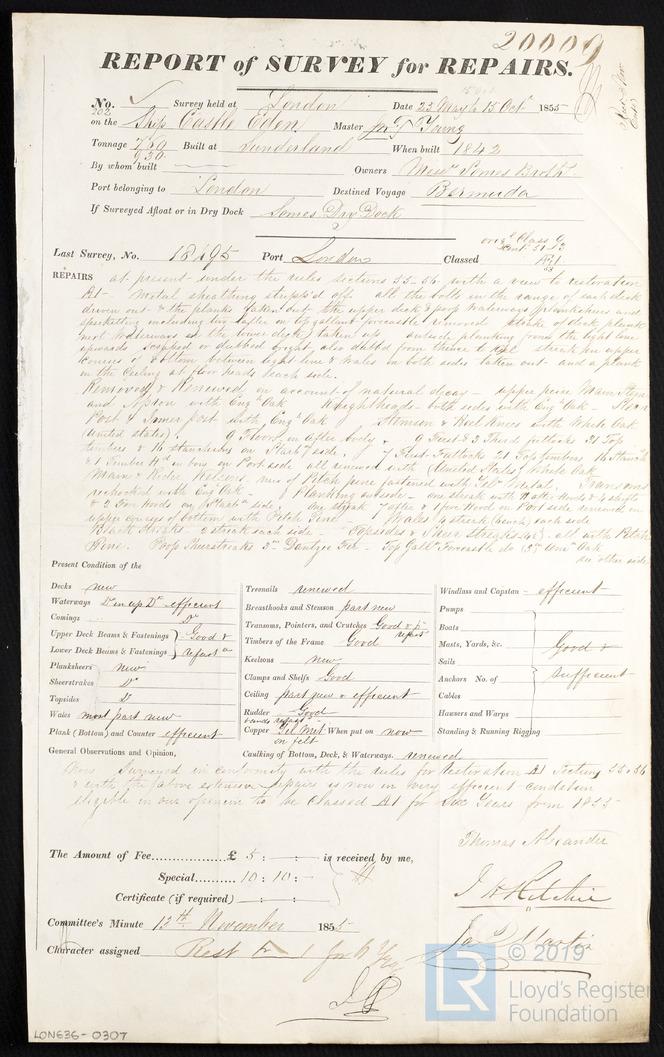 20009
REPORT of SURVEY for REPAIRS.
No. Survey held at London Date 23 May to 15 Octr 1855
on the Ship Castle Eden Master Young
Tonnage 930 Built at Sunderland When built 1842
By whom built Owners Messrs Somes Brothrs
Port belonging to London Destined Voyage Bermuda
If Surveyed Afloat or in Dry Dock Somes Dry Dock
Last Survey, No. 18495 Port London Classed
REPAIRS at present under the rules sections 55-56 with a view to restoration
A1 - Metal sheathing stripp'd off all the bolts in the range of each deck
driven out & the planks taken out the upper deck & poop Waterways plansheers and
spirketting including topgallant forecastle removed strake of deck plank
next Waterways of the lower deck taken up outside planking from the light line
upwards scraped or dubbed bright also dubbed from thence to keel streak pr upper
courses of bottom between light line & Wales on both sides taken out and a plank
in the Ceiling at floor heads each side.
Removed & Renewed on account of natural decay - upper piece Main Stem
and Apron with Eng. Oak Knightheads both sides with Eng. Oak - Stern
Post & Inner post with Eng. Oak Stemson & Keel Knees with White Oak
(United States). 9 Floors in after body 9 First & 3 Third futtocks 31 Top
timbers & 16 stanchions on Starbd side. 7 First Futtocks 21 Top timbers 16 Stanchs
& 1 Timber 4th in bow on Port side all renewed with (United States) White Oak
Main & Rider Kelsons new of Pitch pine fastened with Yelw Metal. Transoms
rechocked with Eng. Oak Planking outside - one streak with 11 after Hoods & 4 shifts
& 2 Fore Hoods on Starbd side; one streak 7 after & 1 fore Hood on Port side renewed in
upper courses of bottom with Pitch Pine Wales 4 streak (each) each side
Black Strakes 2 streak each side - Topsides & Sheer Streaks all with Pitch
Pine. Poop Sheerstreaks 3in Dantzic Fir - Top Gallt Forecastle do 3in Oak
see other side
Present Condition of the
Decks new
Waterways Do efficient
Comings Do
Upper Deck Beams & Fastenings Good &
Lower Deck Beams & Fastenings refastd
Planksheers new
Sheerstrakes Do
Topsides Do
Wales most part new
Plank (Bottom) and Counter efficient
Treenails renewed
Breasthooks and Stemson part new
Transoms, Pointers, and Crutches Good & pt refast
Timbers of the Frame Good
Keelsons new
Clamps and Shelfs Good
Ceiling part new & efficient
Rudder Good
Copper Yel Metl When put on now
on felt
Caulking of Bottom, Deck, & Waterways. renewed
Windlass and Capstan efficient
Pumps
Boats
Masts, Yards, &c. Good &
Sails
Anchors No. of sufficient
Cables
Hawsers and Warps
Standing & Running Rigging
General Observations and Opinion,
Surveyed in conformity with the rules for restoration A1 Section 55 & 56
& with the above extensive repairs is now in very efficient condition
eligible in our opinion to be classed A1 for Six Years from 1855
Thomas Alexander
The Amount of Fee £ 5 : — : — is received by me,
Special 10 : 10 : —
Certificate (if required)
J H Ritchie
Committee's Minute 13th November 1855
Jas Martin
Character assigned Restd A 1 for 6 Yrs
© 2019
LR Lloyd's Register
Foundation
LON636-0307